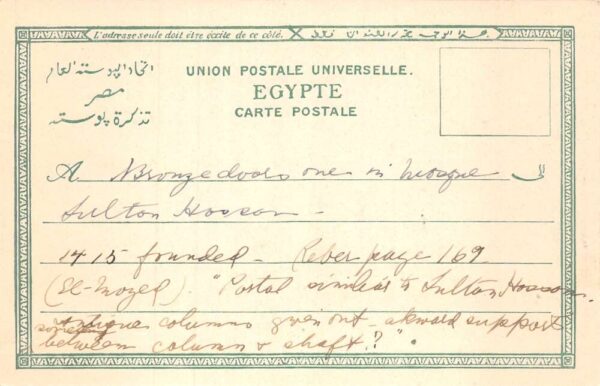 L'adresse seule doit être écrite de ce côté.
اتحاد البوسته العام
مصر
تذكرة بوسته
UNION POSTALE UNIVERSELLE.
EGYPTE
CARTE POSTALE
A. Bronze doors one in mosque
الى
Sulton Hosson –
1415 founded – Reber page 169
(El-Mozed). "Portal similar to Sulton Hosson.
antique columns given out – akward support
something between column & shaft?"